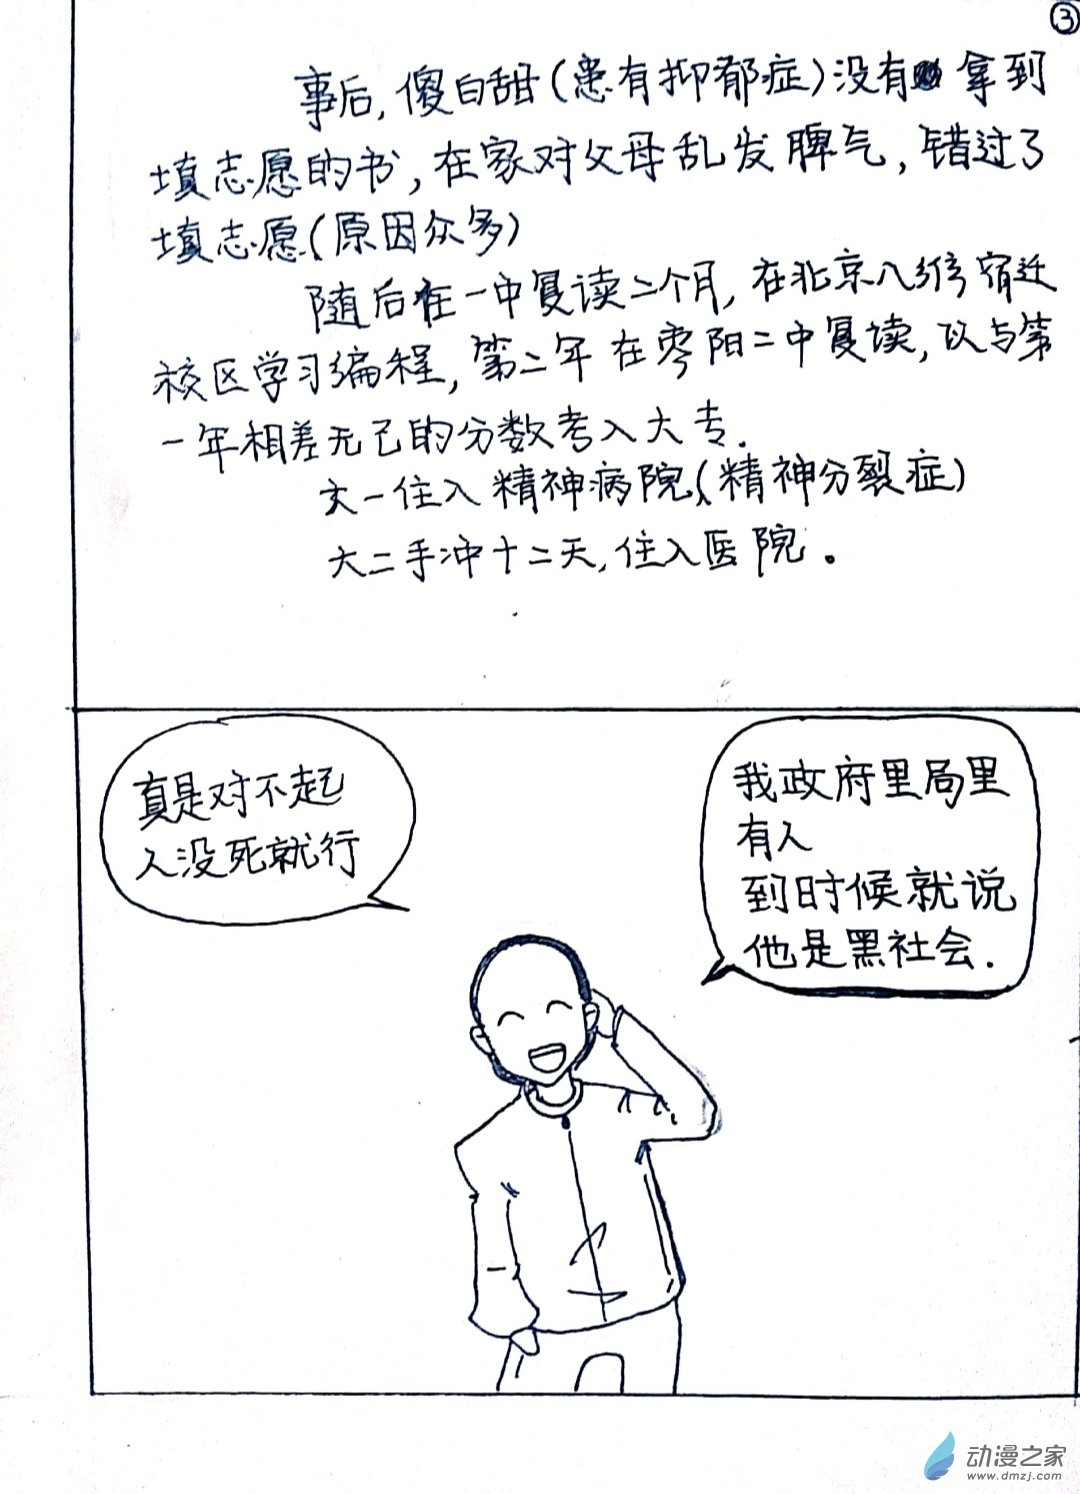 ③
事后,傻白甜(患有抑郁症)没有拿到
填志愿的书,在家对父母乱发脾气,错过了
填志愿(原因众多)
随后在一中复读二个月,在北京八维宿迁
校区学习编程,第二年在零阳二中复读,以与第
一年相差无己的分数考入大专.
大一住入精神病院(精神分裂症)
大二手冲十二天,住入医院。
真是对不起
人没死就行
我政府里局里
有人
到时候就说
他是黑社会.
动漫之家
www.dmzj.com